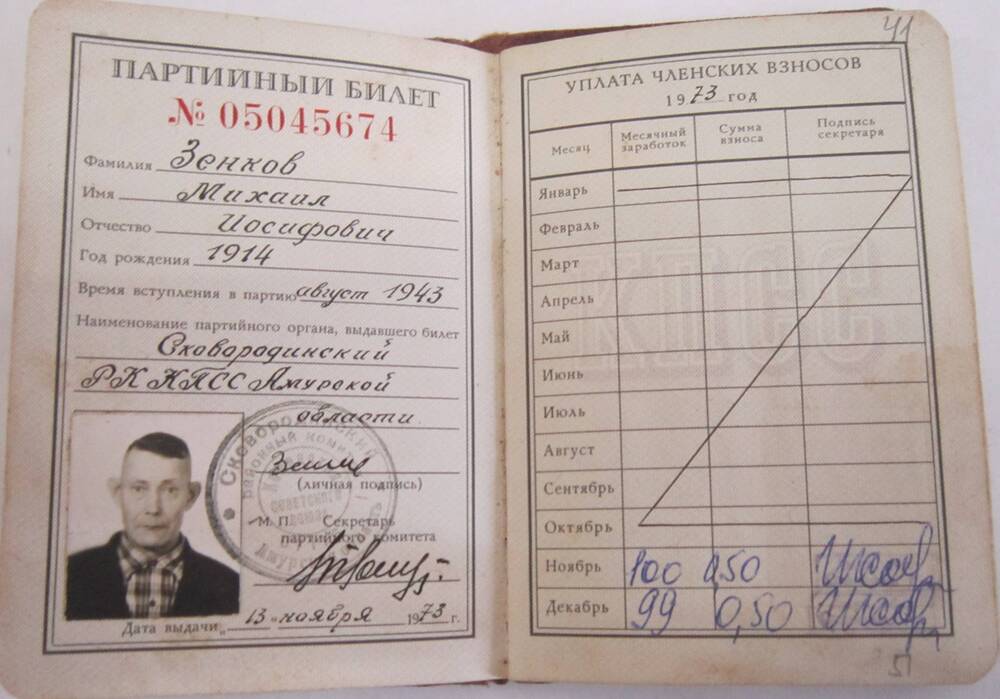 ПАРТИЙНЫЙ БИЛЕТ
№ 05045674
Фамилия Зенков
Имя Михаил
Отчество Иосифович
Год рождения 1914
Время вступления в партию август 1943
Наименование партийного органа, выдавшего билет
Сковородинский
РК КПСС Амурской
области
(личная подпись)
М. П. Секретарь
партийного комитета
Дата выдачи „13“ ноября 1973 г.
41
УПЛАТА ЧЛЕНСКИХ ВЗНОСОВ
1973 год
Месяц Месячный заработок Сумма взноса Подпись секретаря
Январь
Февраль
Март
Апрель
Май
Июнь
Июль
Август
Сентябрь
Октябрь
Ноябрь 100 0,50
Декабрь 99 0,50
КПСС